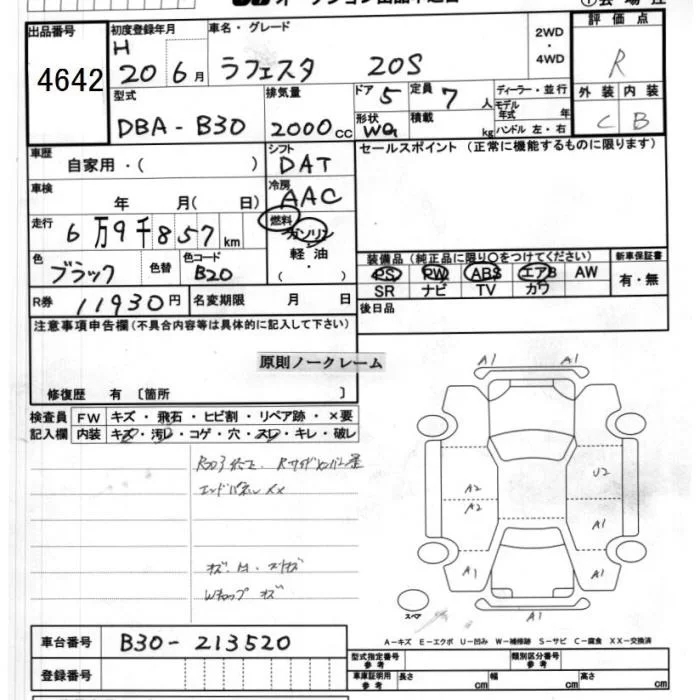 出品番号
4642
初度登録年月
H 20 6月
車名・グレード
ラフェスタ 20S
2WD
・
4WD
評価点
R
型式
DBA-B30
排気量
2000cc
ドア 5
定員 7人
形状 WG
積載 kg
ディーラー・並行
モデル年式 年
ハンドル 左・右
外装 内装
C B
車歴
自家用・( )
シフト
DAT
セールスポイント(正常に機能するものに限ります)
車検
年 月( 日)
冷房
AAC
走行
6万9千857km
燃料
ガソリン
軽油
・
( )
色
ブラック
色替
色コード
B20
装備品(純正品に限り○をつけてください)
新車保証書
PS PW ABS エアB AW
有・無
SR ナビ TV カワ
R券 11930円
名変期限 月 日
後日品
注意事項申告欄(不具合内容等は具体的に記入して下さい)
原則ノークレーム
修復歴 有〔箇所 〕
検査員 FW キズ・飛石・ヒビ割・リペア跡・×要
記入欄 内装 キズ・汚レ・コゲ・穴・スレ・キレ・破レ
エンドパネルXX
A1 A1
A2
A2
U2
A1
A1
A1
A1
スペア
A-キズ E-エクボ U-凹み W-補修跡 S-サビ C-腐食 XX-交換済
車台番号 B30-213520
型式指定番号
参考
類別区分番号
参考
登録番号
車庫証明用
参考
長さ cm
幅 cm
高さ cm